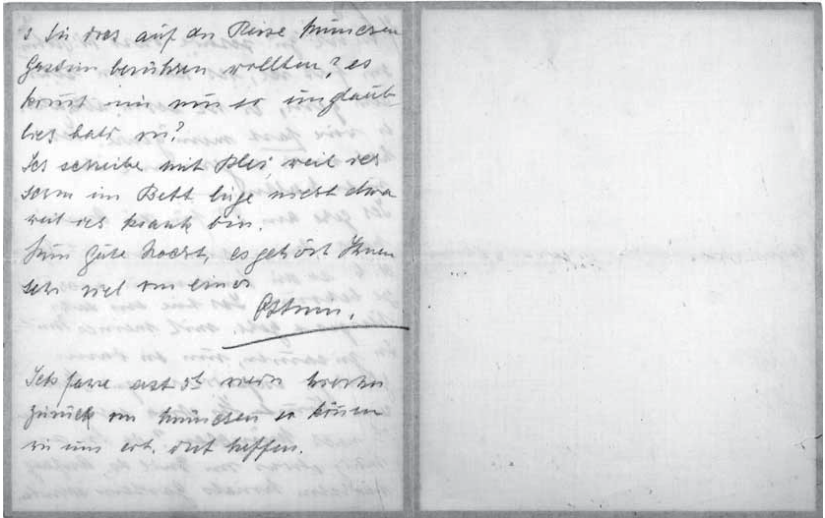 s Sie dies auf der Reise München
berühren wollten? es
kommt mir nur so unglaub
lich bald vor?
Ich schreibe mit Blei, weil ich
schon im Bett liege nicht etwa
weil ich krank bin.
Nun gute Nacht, es gehört Ihnen
sehr viel von einer

Ich fahre erst wieder
zurück von München so können
wir uns evt. dort treffen.